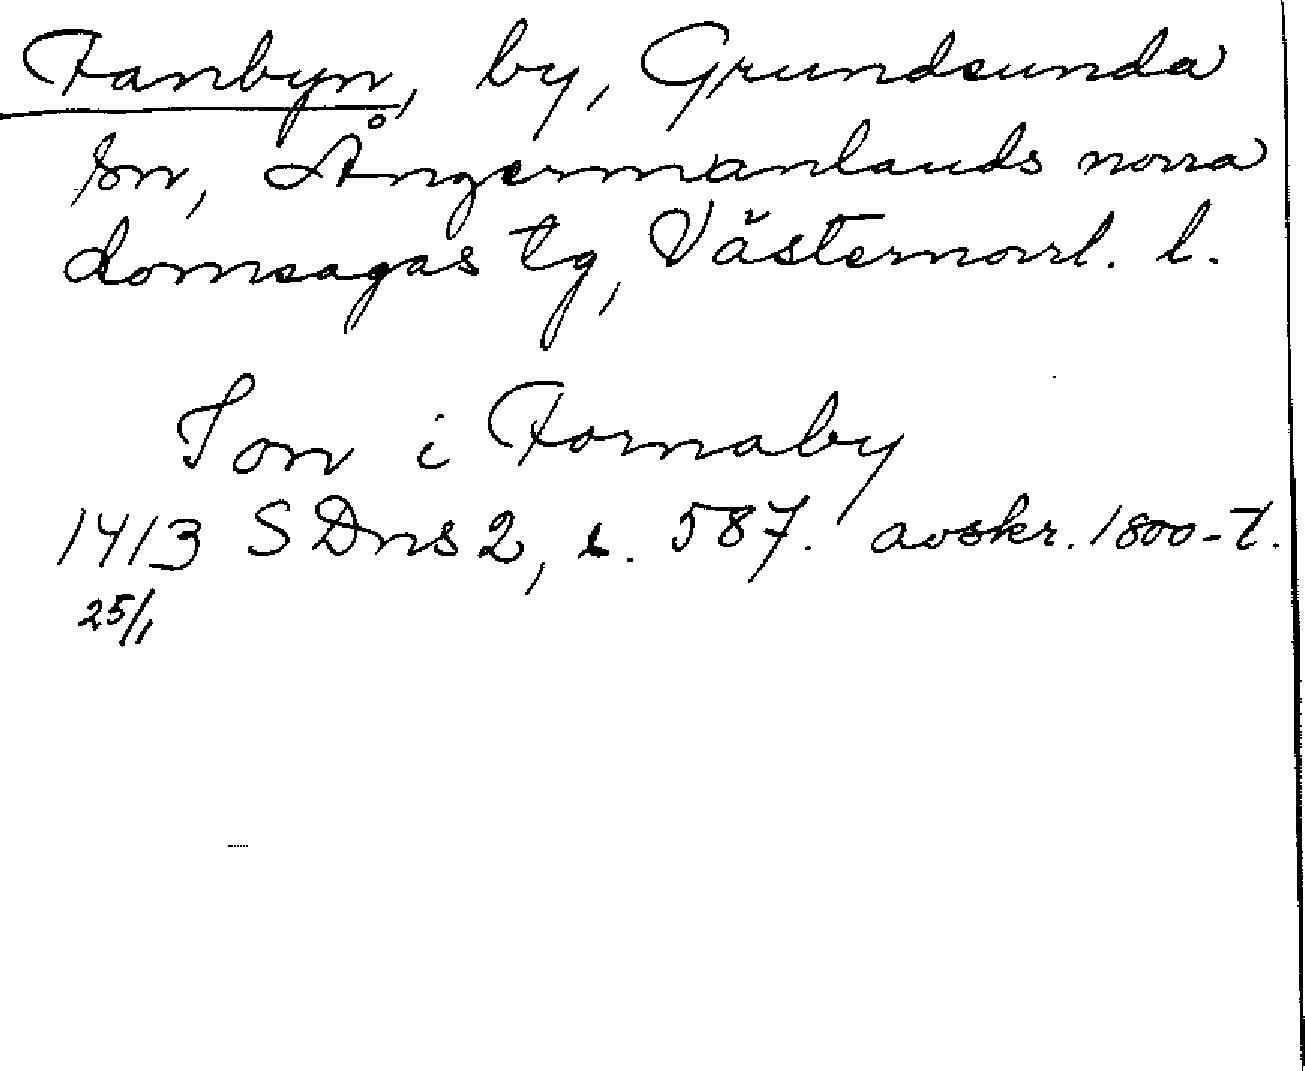 Fanbyn, by, Grundsunda
sn, Ångermanlands norra
domsagas tg, Västernorrl. l.
Jon i Fornaby
1413 SDns 2, s. 587. avskr. 1800-t.
25/1